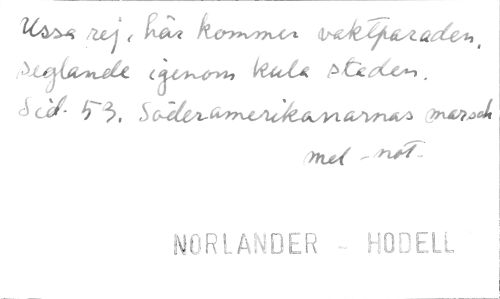 Ussa rej, här kommer vaktparaden,
seglande igenom kula staden.
Sid. 53. Söderamerikanarnas marsch
mel - not.
NORLANDER - HODELL